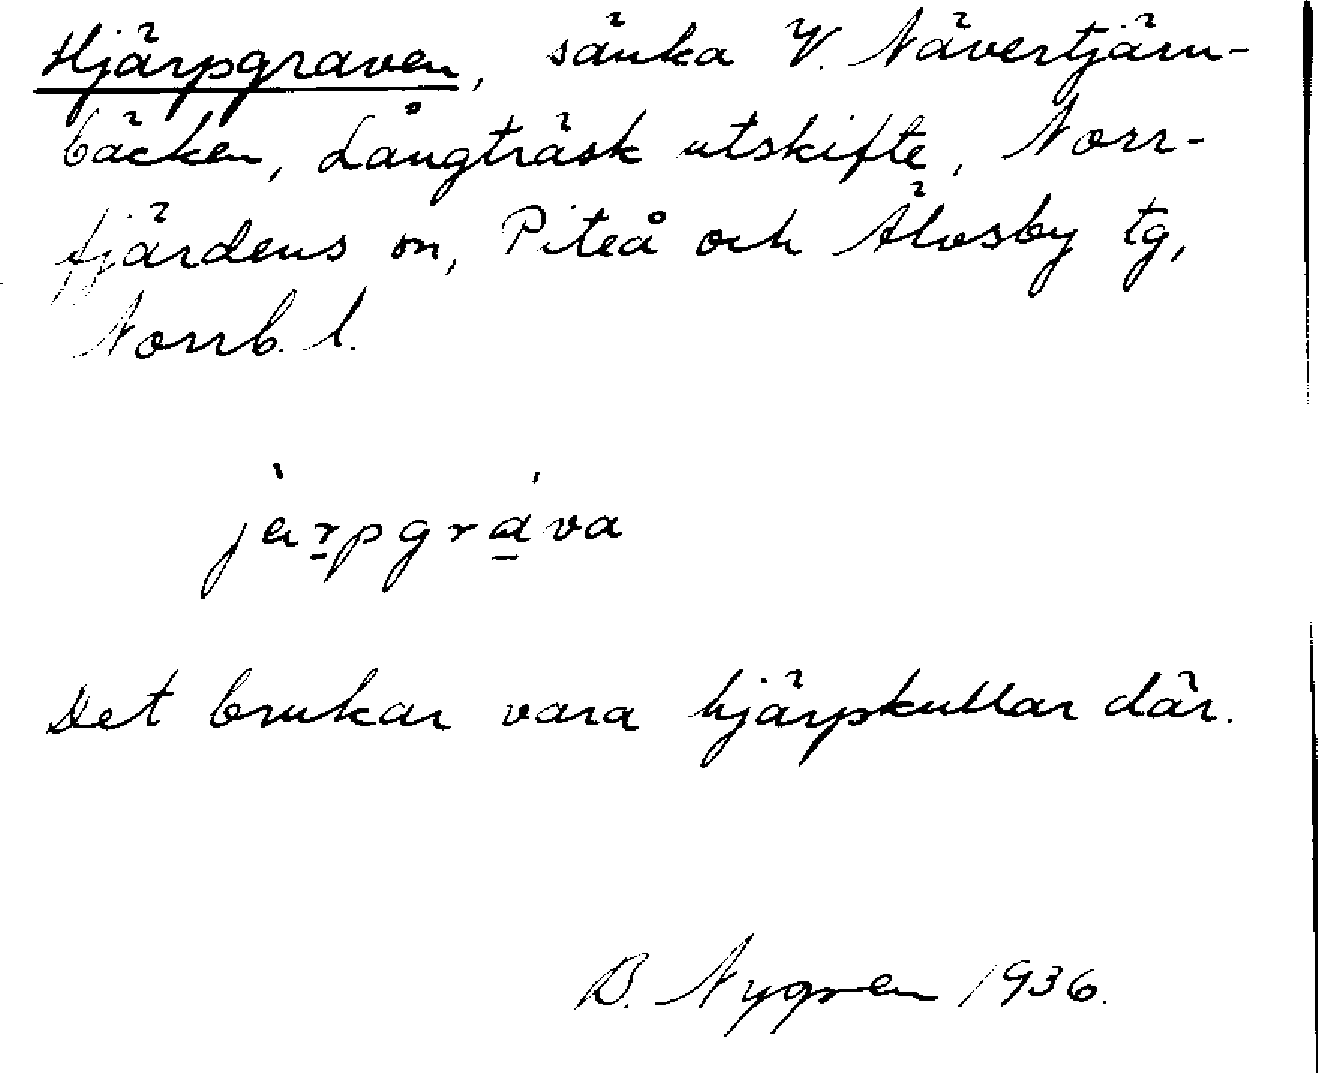 Hjärpgraven, sänka V. Nävertjärn-
bäcken, Långträsk utskifte, Norr-
fjärdens sn, Piteå och Älvsby tg,
Norrb. l.
Det brukar vara hjärpkullar där.
B. Nygren 1936.